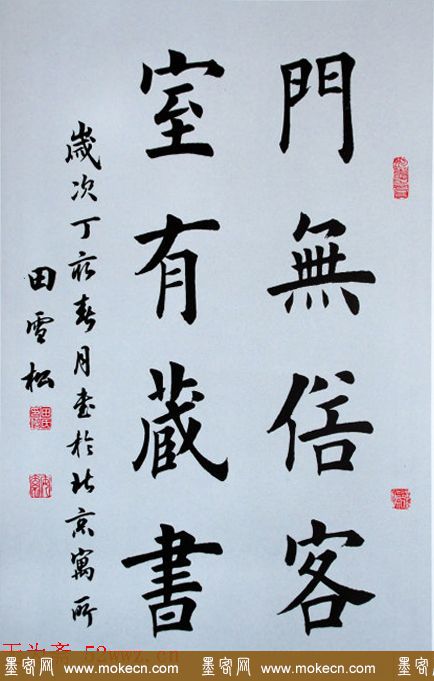 門無俗客
室有蔵書
歲次丁亥春月書於北京寓所
田雪松
52wwz.cn
墨客网 www.mokecn.com 墨客网 www.mokecn.com 墨客网